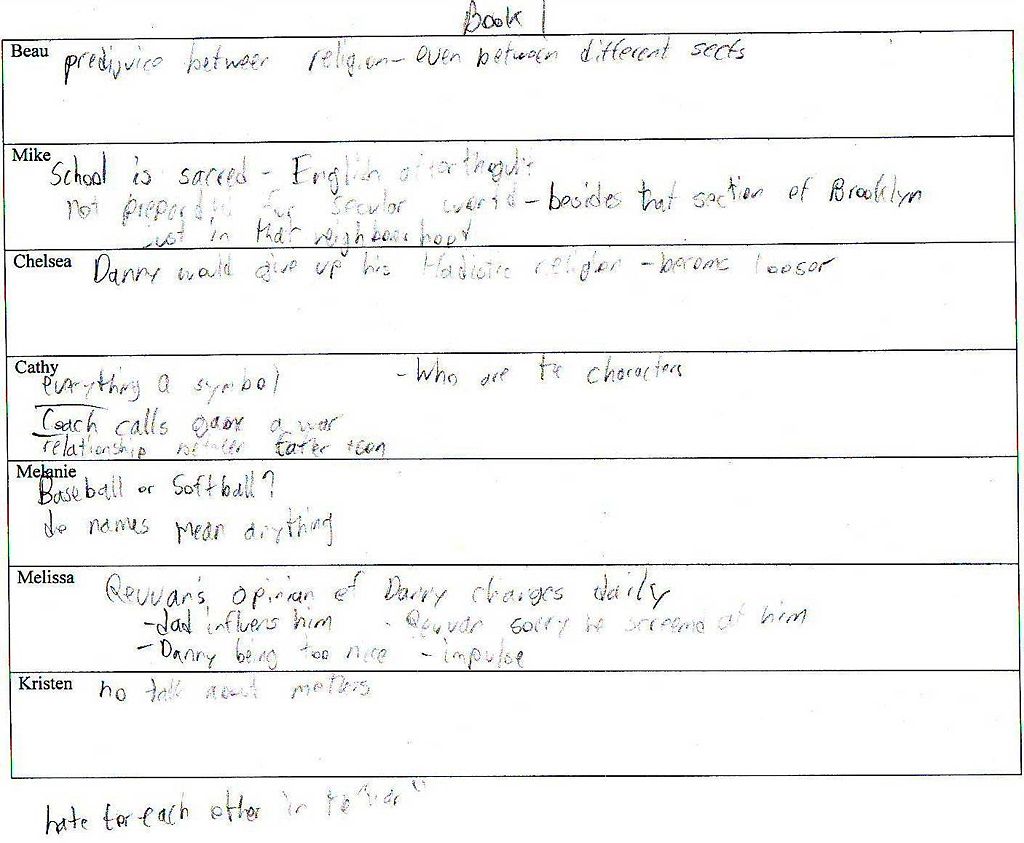 Book 1
Beau predijvice between religion- even between different sects
Mike School is sacred - English afterthoguht
not prepared for secular world - besides that section of Brooklyn
just in that neighboorhood
Chelsea Danny would give up his Hadistic religion - become looser
Cathy everything a symbol - Who are the characters
Coach calls game a war
relationship between father + son
Melanie
Baseball or Softball?
do names mean anything
Melissa Reuvan's opinion of Danny changes daily
- dad influens him - Reuvan sorry he screemd at him
- Danny being too nice - impulse
Kristen no talk about mothers
hate for each other in the "war"